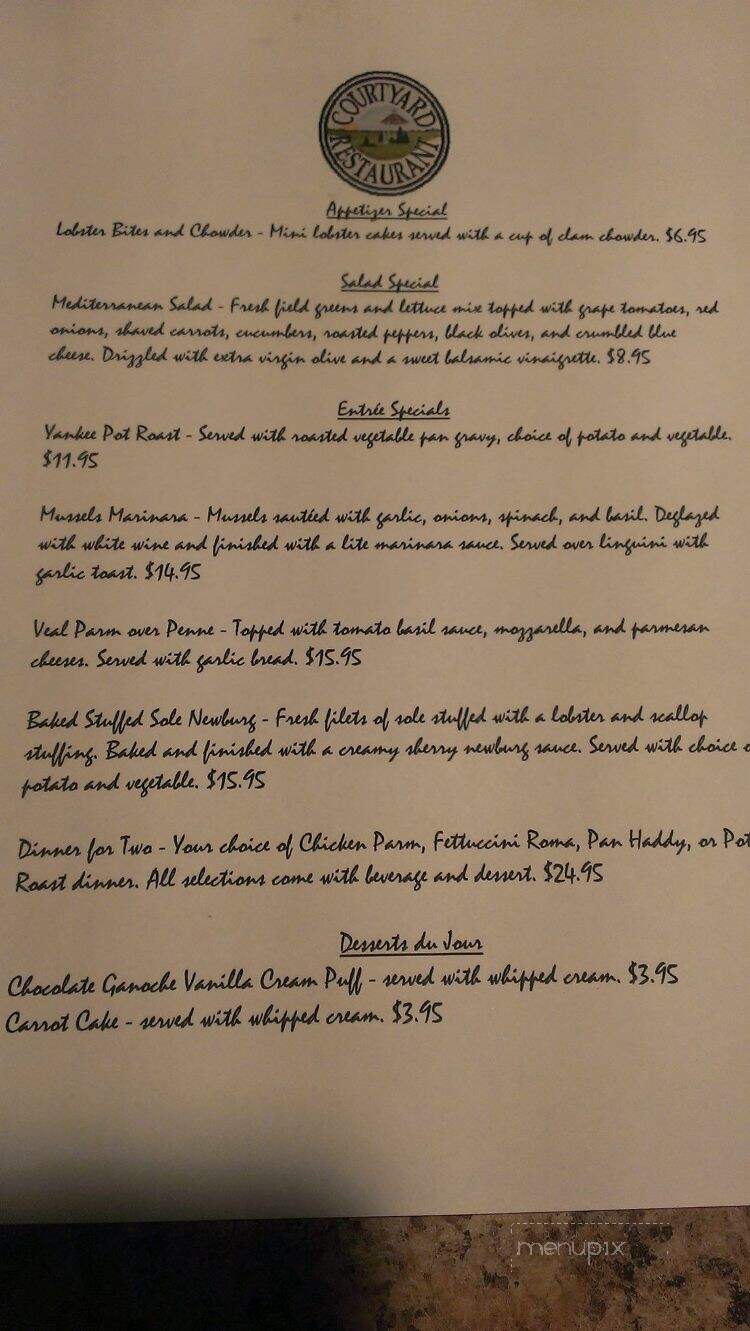 COURTYARD
RESTAURANT
Appetizer Special
Lobster Bites and Chowder - Mini lobster cakes served with a cup of clam chowder. $6.95
Salad Special
Mediterranean Salad - Fresh field greens and lettuce mix topped with grape tomatoes, red
onions, shaved carrots, cucumbers, roasted peppers, black olives, and crumbled blue
cheese. Drizzled with extra virgin olive and a sweet balsamic vinaigrette. $8.95
Entrée Specials
Yankee Pot Roast - Served with roasted vegetable pan gravy, choice of potato and vegetable.
$11.95
Mussels Marinara - Mussels sautéed with garlic, onions, spinach, and basil. Deglazed
with white wine and finished with a lite marinara sauce. Served over linguini with
garlic toast. $14.95
Veal Parm over Penne - Topped with tomato basil sauce, mozzarella, and parmesan
cheeses. Served with garlic bread. $15.95
Baked Stuffed Sole Newburg - Fresh filets of sole stuffed with a lobster and scallop
stuffing. Baked and finished with a creamy sherry newburg sauce. Served with choice o
potato and vegetable. $15.95
Dinner for Two - Your choice of Chicken Parm, Fettuccini Roma, Pan Haddy, or Pot
Roast dinner. All selections come with beverage and dessert. $24.95
Desserts du Jour
Chocolate Ganoche Vanilla Cream Puff - served with whipped cream. $3.95
Carrot Cake - served with whipped cream. $3.95
menupix